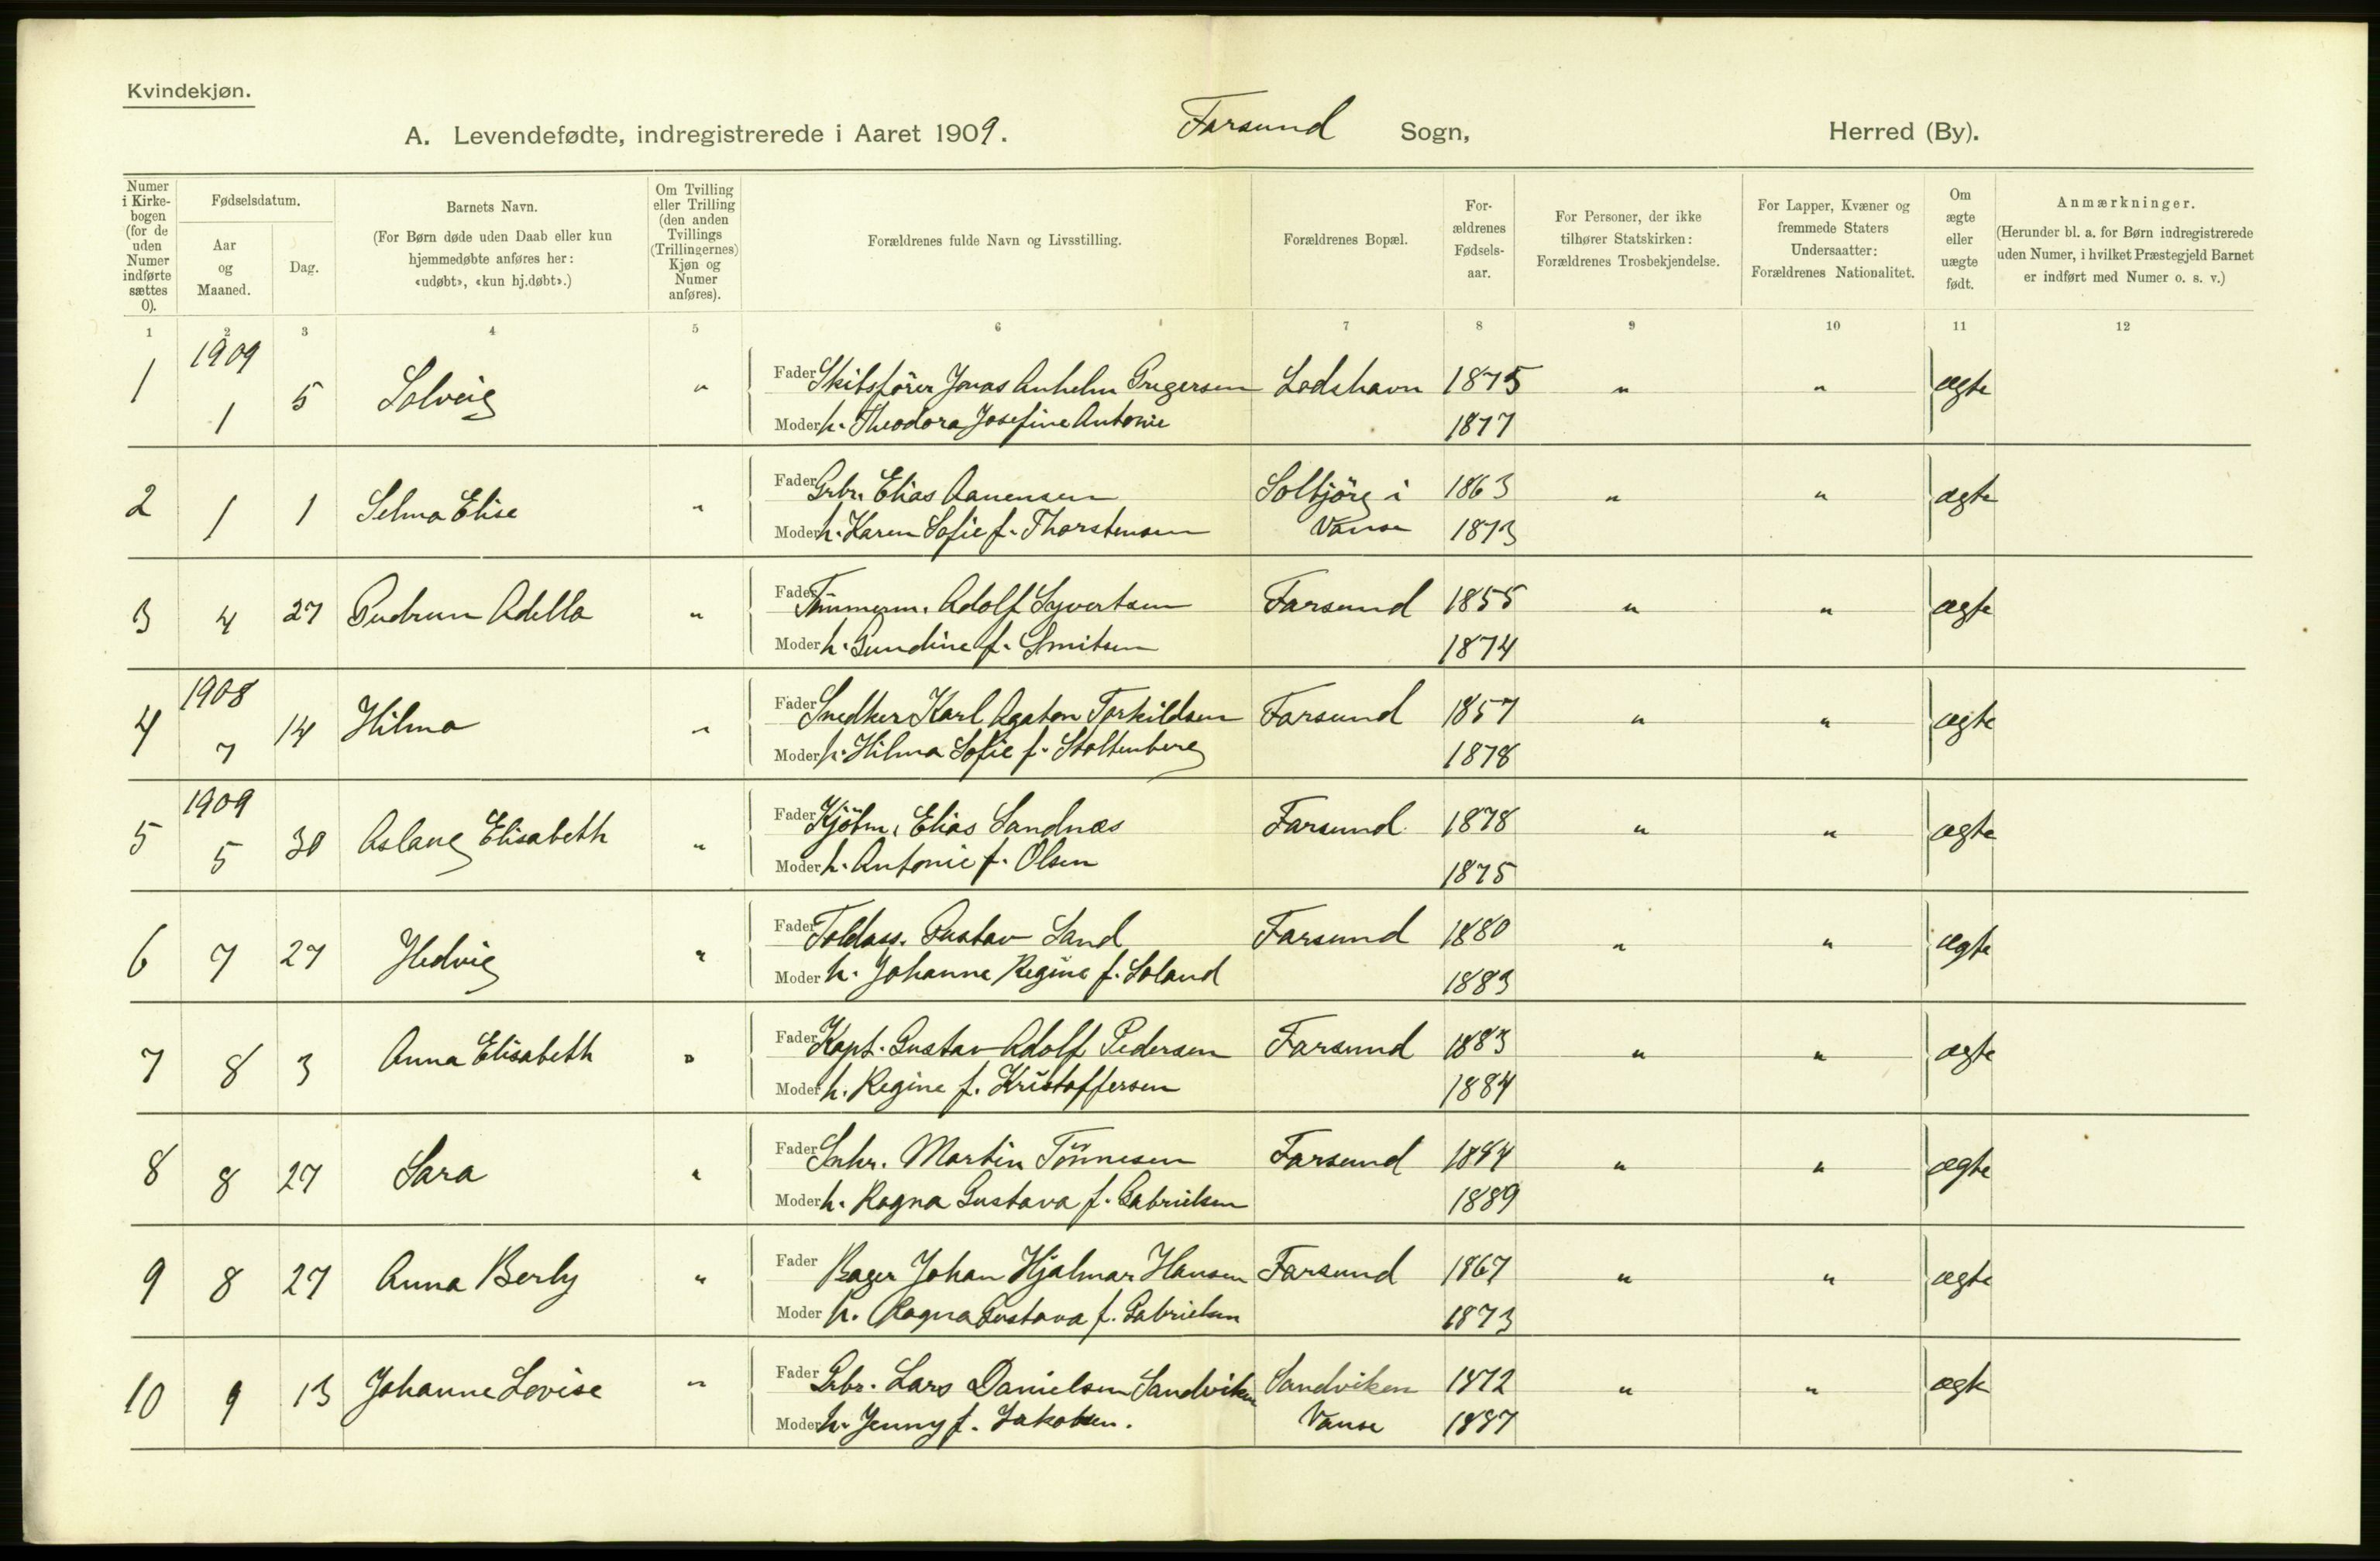 Kvindekjøn.
A. Levendefødte, indregistrerede i Aaret 1909. Farsund Sogn, Herred (By).
Numer i Kirke-bogen (for de uden Numer indførte sættes 0).
Fødselsdatum.
Aar og Maaned.
Dag.
Barnets Navn.
(For Børn døde uden Daab eller kun hjemmedøbte anføres her: «udøbt», «kun hj.døbt».)
Om Tvilling eller Trilling (den anden Tvillings (Trillingernes) Kjøn og Numer anføres).
Forældrenes fulde Navn og Livsstilling.
Forældrenes Bopæl.
For-ældrenes Fødsels-aar.
For Personer, der ikke tilhører Statskirken: Forældrenes Trosbekjendelse.
For Lapper, Kvæner og fremmede Staters Undersaatter: Forældrenes Nationalitet.
Om ægte eller uægte født.
Anmærkninger.
(Herunder bl. a. for Børn indregistrerede uden Numer, i hvilket Præstegjeld Barnet er indført med Numer o. s. v.)
1 2 3 4 5 6 7 8 9 10 11 12
1 1909 1 5 Solveig " Fader Skibsfører Jonas Anhelm Gregersen Lodshavn 1875 " " ægte
Moder h. Theodora Josefine Antonie 1877
2 1 1 Selma Elise " Fader Grbr. Elias Aanensen Solbjörg i 1863 " " ægte
Moder h. Karen Sofie f. Thorstensen Vanse 1873
3 4 27 Gudrun Adella " Fader Tömmerm. Adolf Syvertsen Farsund 1855 " " ægte
Moder h. Gundine f. Smitsen 1874
4 1908 7 14 Hilma " Fader Snedker Karl Agaton Torkildsen Farsund 1857 " " ægte
Moder h. Hilma Sofie f. Stoltenberg 1878
5 1909 5 30 Aslaug Elisabeth " Fader Kjöbm. Elias Sandnæs Farsund 1878 " " ægte
Moder h. Antonie f. Olsen 1875
6 7 27 Hedvig " Fader Toldass. Gustav Sand Farsund 1880 " " ægte
Moder h. Johanne Regine f. Soland 1883
7 8 3 Anna Elisabeth " Fader Kapt. Gustav Adolf Pedersen Farsund 1883 " " ægte
Moder h. Regine f. Kristoffersen 1884
8 8 27 Sara " Fader Martin Tönnesen Farsund 1884 " " ægte
Moder h. Ragna Gustava f. Gabrielsen 1889
9 8 27 Anna Berly " Fader Bager Johan Hjalmar Hansen Farsund 1867 " " ægte
Moder h. Ragna Gustava f. Gabrielsen 1873
10 9 13 Johanne Lovise " Fader Grbr. Lars Danielsen Sandviken Sandviken 1872 " " ægte
Moder h. Jenny f. Jakobsen. Vanse 1887